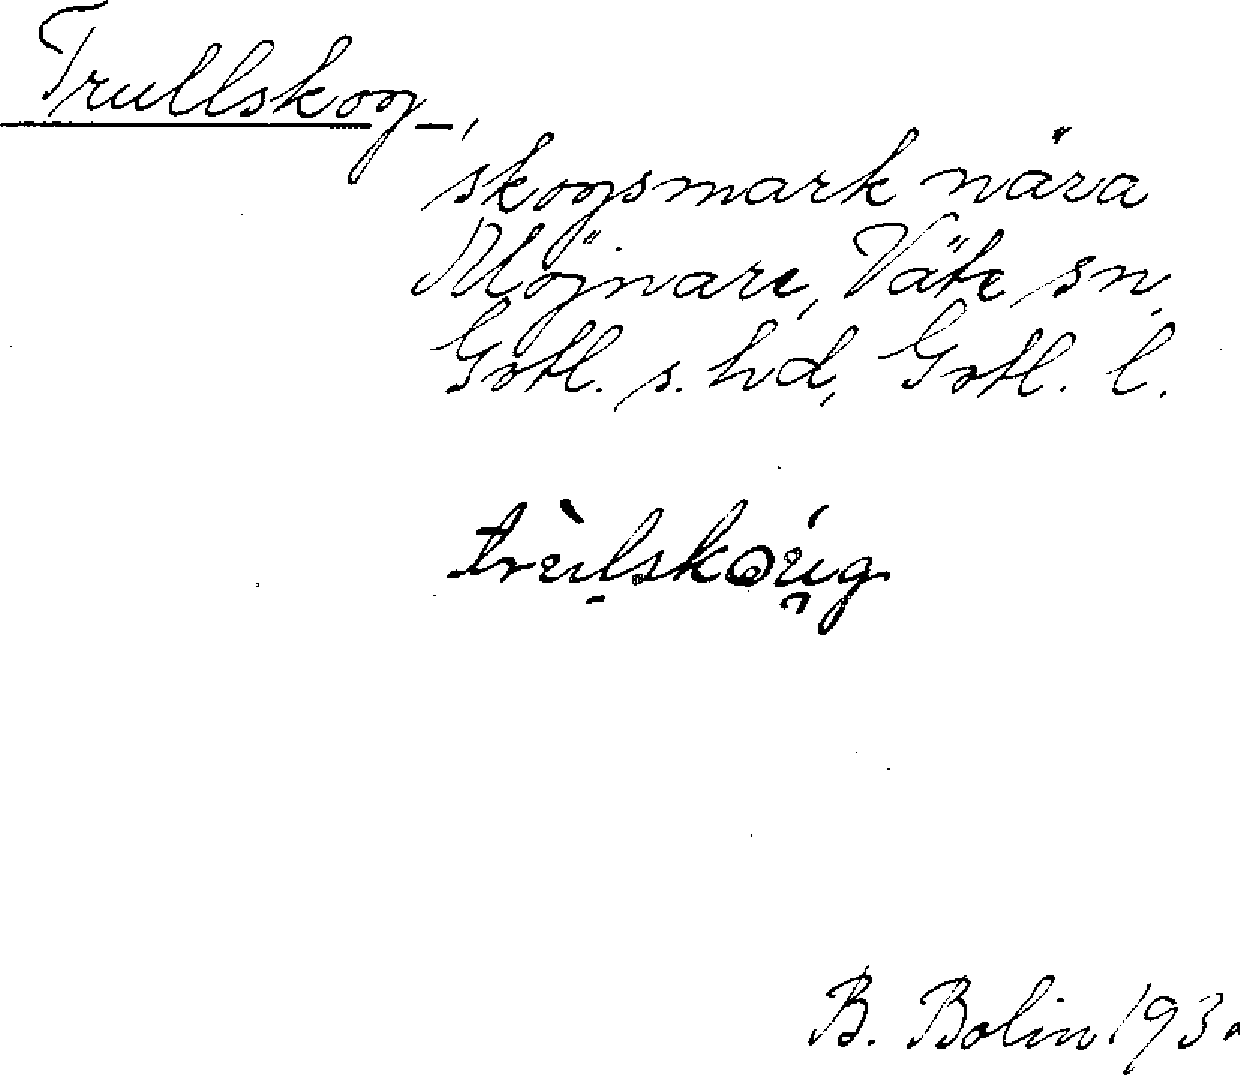 Trullskog,
skogsmark nära
Möjnare, Väte sn,
Gotl. s. hd, Gotl. l.
trùlskóug.
B. Bolin 193